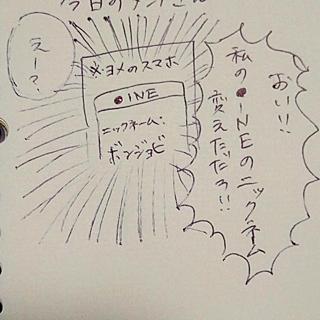 おい!!
私の●INEのニックネーム
変えただろ!!
※ヨメのスマホ
●INE
ニックネーム:
ボンジョビ
えー?